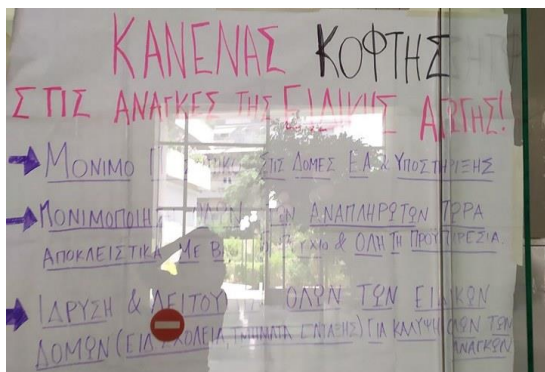 ΚΑΝΕΝΑΣ ΚΟΦΤΗΣ
ΣΤΙΣ ΑΝΑΓΚΕΣ ΤΗΣ ΕΙΔΙΚΗΣ ΑΓΩΓΗΣ!
ΜΟΝΙΜΟ ΣΤΙΣ ΔΟΜΕΣ Ε.Α. & ΥΠΟΣΤΗΡΙΞΗΣ
ΑΝΑΠΛΗΡΩΤΩΝ ΤΩΡΑ
ΑΠΟΚΛΕΙΣΤΙΚΑ ΜΕ & ΟΛΗ ΤΗ ΠΡΟΫΠΗΡΕΣΙΑ
ΙΔΡΥΣΗ & ΟΛΩΝ ΤΩΝ ΕΙΔΙΚΩΝ
ΔΟΜΩΝ (ΕΙΔ. ΣΧΟΛΕΙΑ, ΤΜΗΜΑΤΑ ΕΝΤΑΞΗΣ) ΓΙΑ ΚΑΛΥΨΗ ΟΛΩΝ ΤΩΝ
ΑΝΑΓΚΩΝ